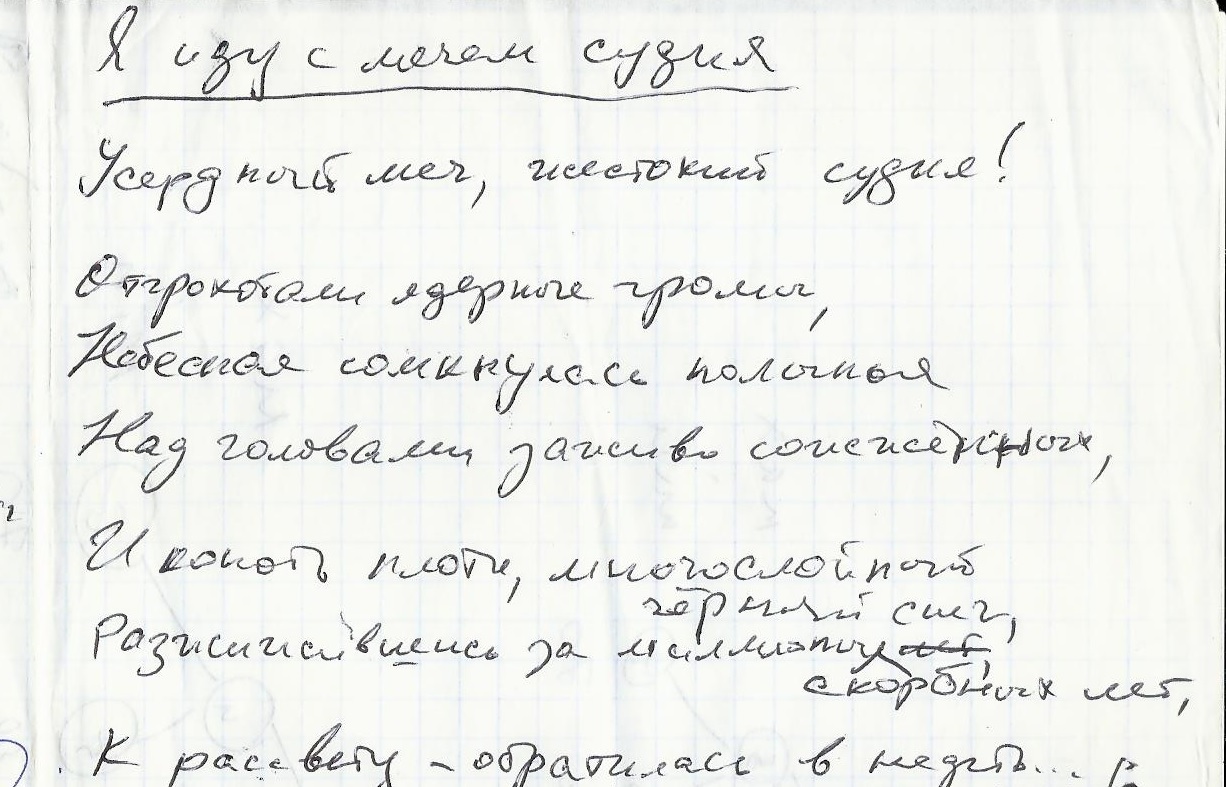 Я иду с мечем судия
Усердный меч, жестокий судия!
Отгрохотали ядерные громы,
Небесная сомкнулась полынья
Над головами заживо сожжённых,
И копоть плоти, многослойный
чёрный снег,
Разжижившись за миллионы лет,
скорбных лет,
К рассвету - обратилась в недть...